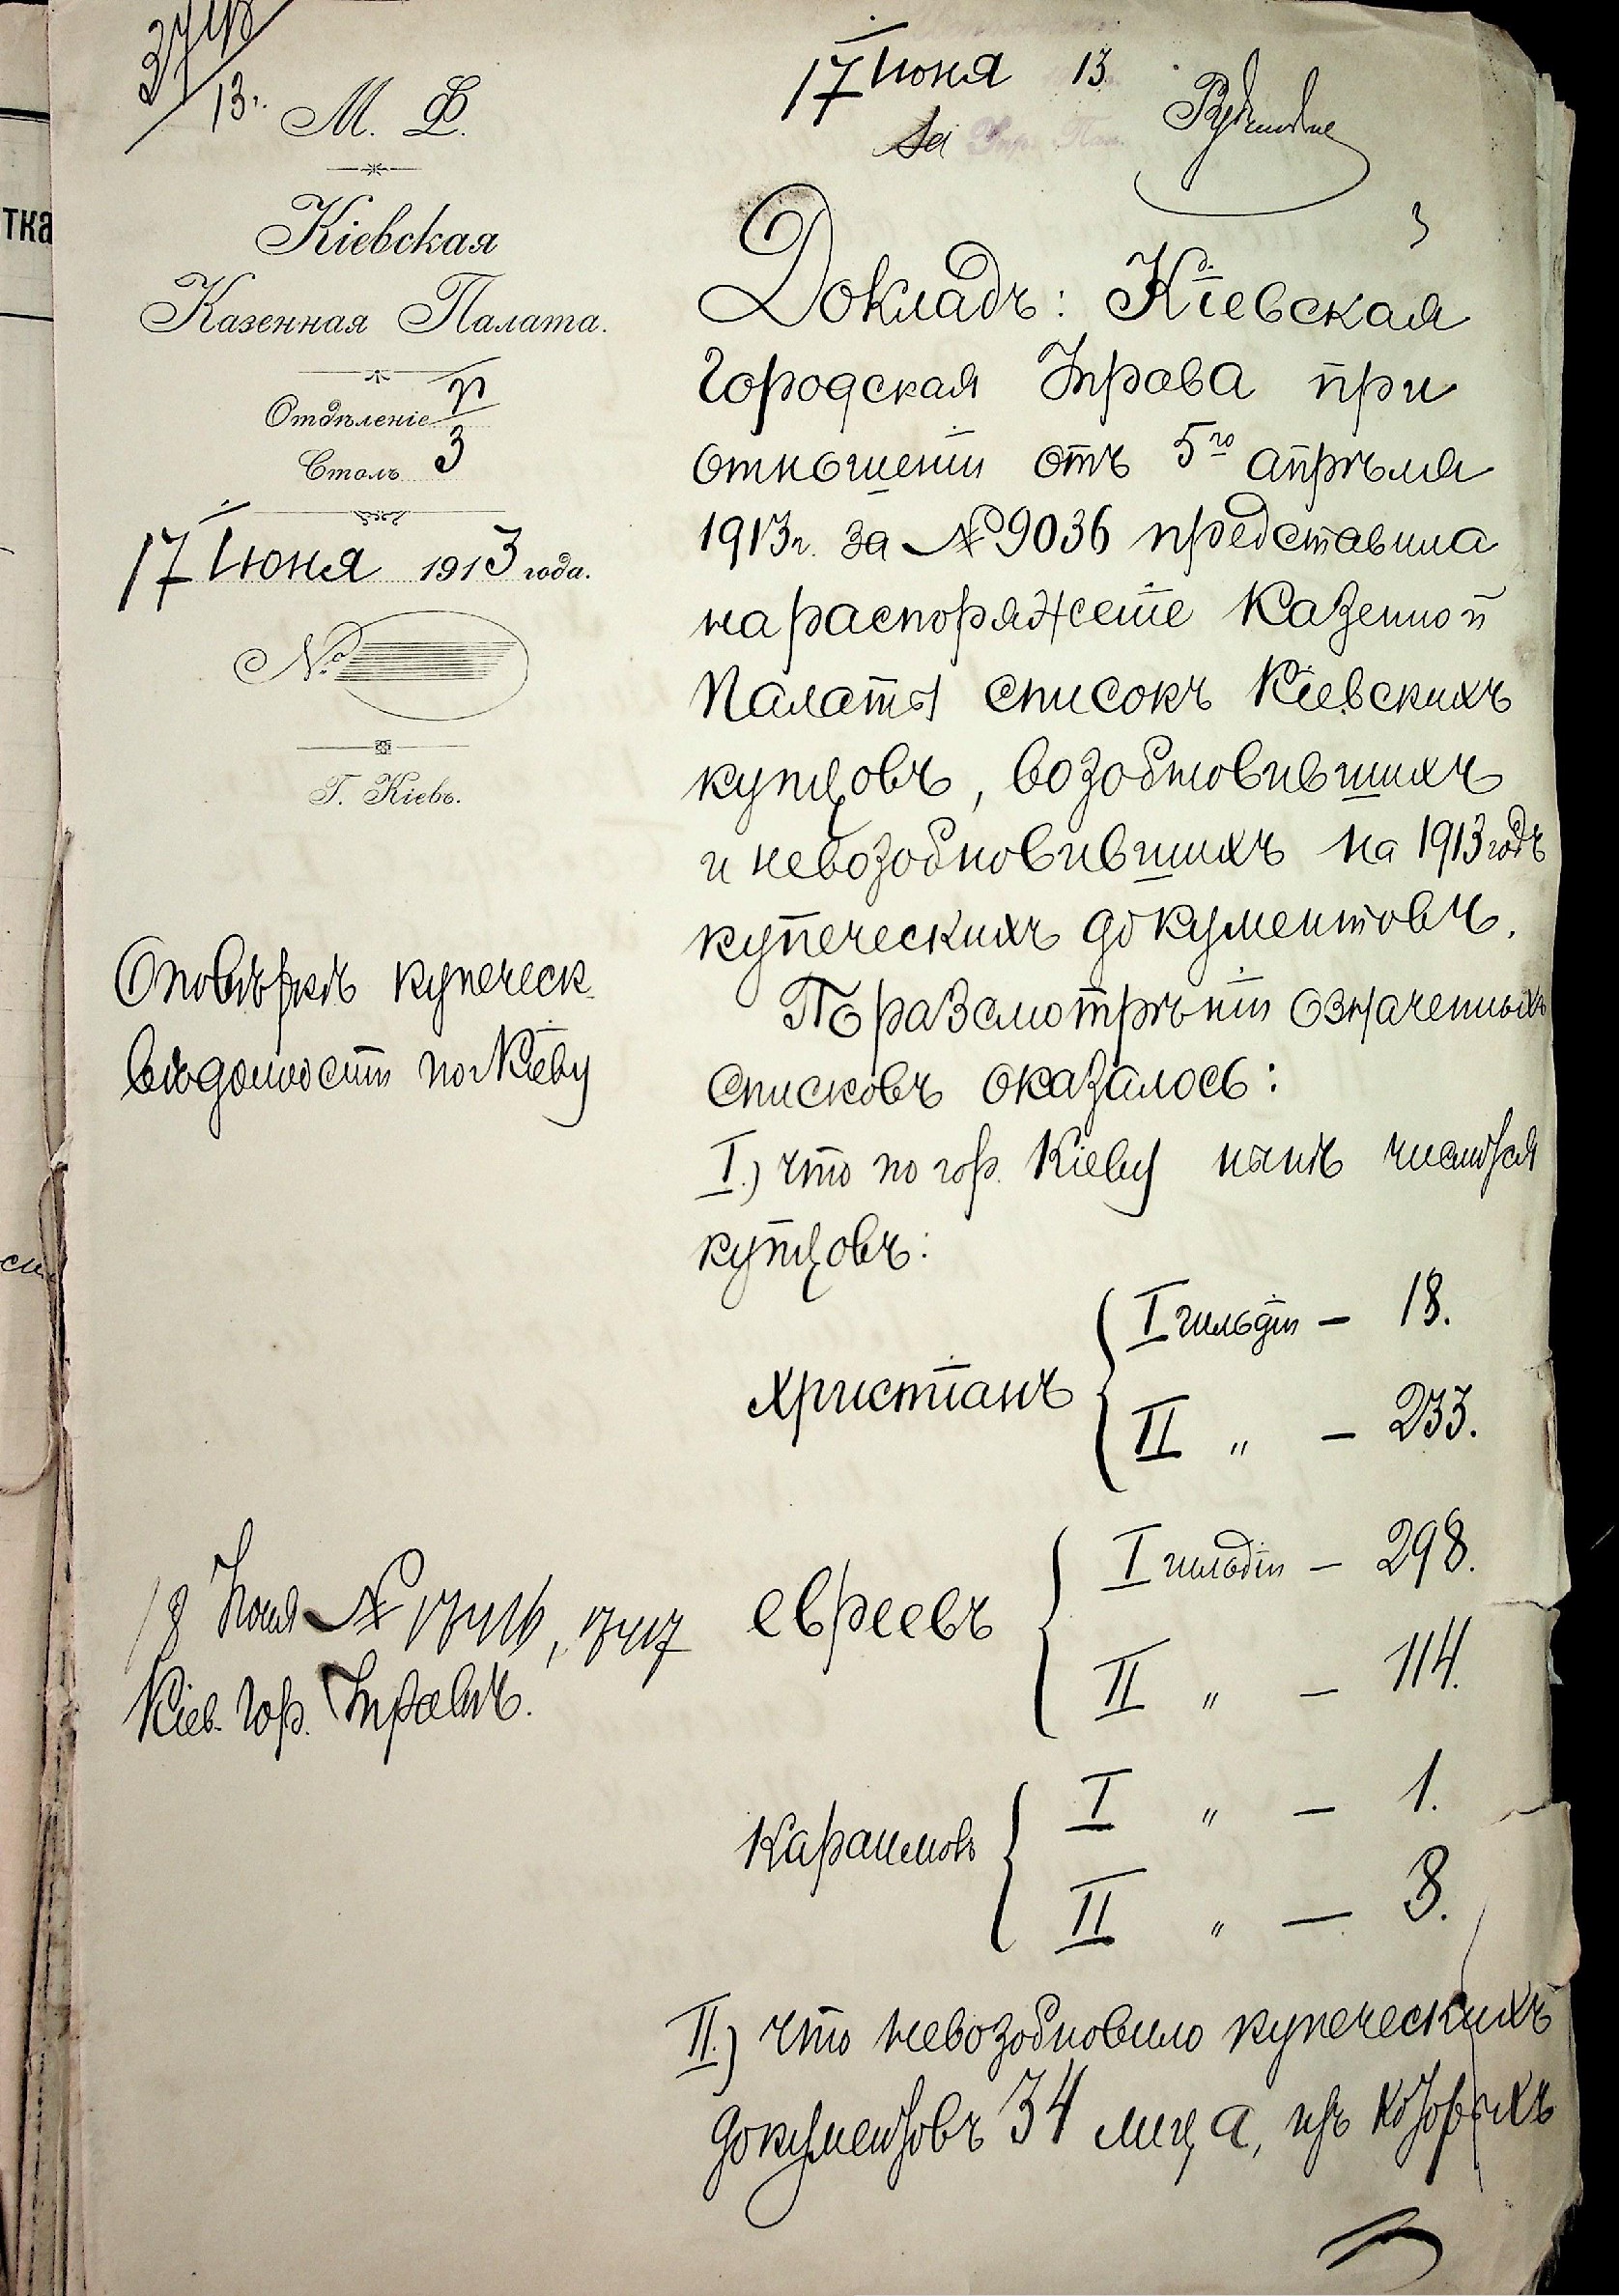 13 г.
М. Ф.
Кіевская
Казенная Палата.
Отдѣленіе
Столъ 3
17 Іюня 1913 года.
№
Г. Кіевъ.
О повѣркѣ купеческ.
вѣдомости по Кіеву
18 Іюня № 17416, 17417
Кіев. Гор. Управѣ.
17 Іюня 13
За Упр. Пал.
3
Докладъ: Кіевская
Городская Управа при
отношеніи отъ 5го апрѣля
1913 г. за № 9036 представила
на распоряженіе Казенной
Палаты списокъ Кіевскихъ
купцовъ, возобновившихъ
и невозобновившихъ на 1913 годъ
купеческихъ документовъ.
По разсмотрѣніи означенныхъ
списковъ оказалось:
I.) что по гор. Кіеву нынѣ числится
купцовъ:
христіанъ { I гильдіи – 18.
II " – 233.
евреевъ { I гильдіи – 298.
II " – 114.
Караимовъ { I " – 1.
II " – 3.
II.) что невозобновило купеческихъ
документовъ 34 лица, изъ которыхъ
тка